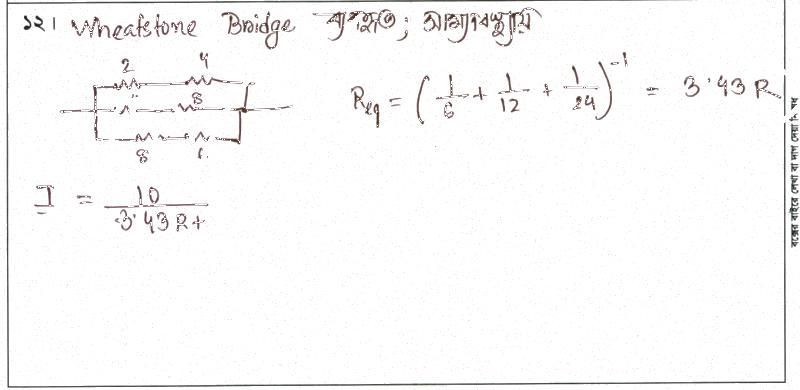 ১২। Wheatstone Bridge ব্যবহৃত; সাম্যাবস্থায়
2 4
8
8
R_eq = (1/6 + 1/12 + 1/24)^-1 = 3.43 R
I = 10 / 3.43 R +
বক্সের বাইরে লেখা বা দাগ দেয়া নি